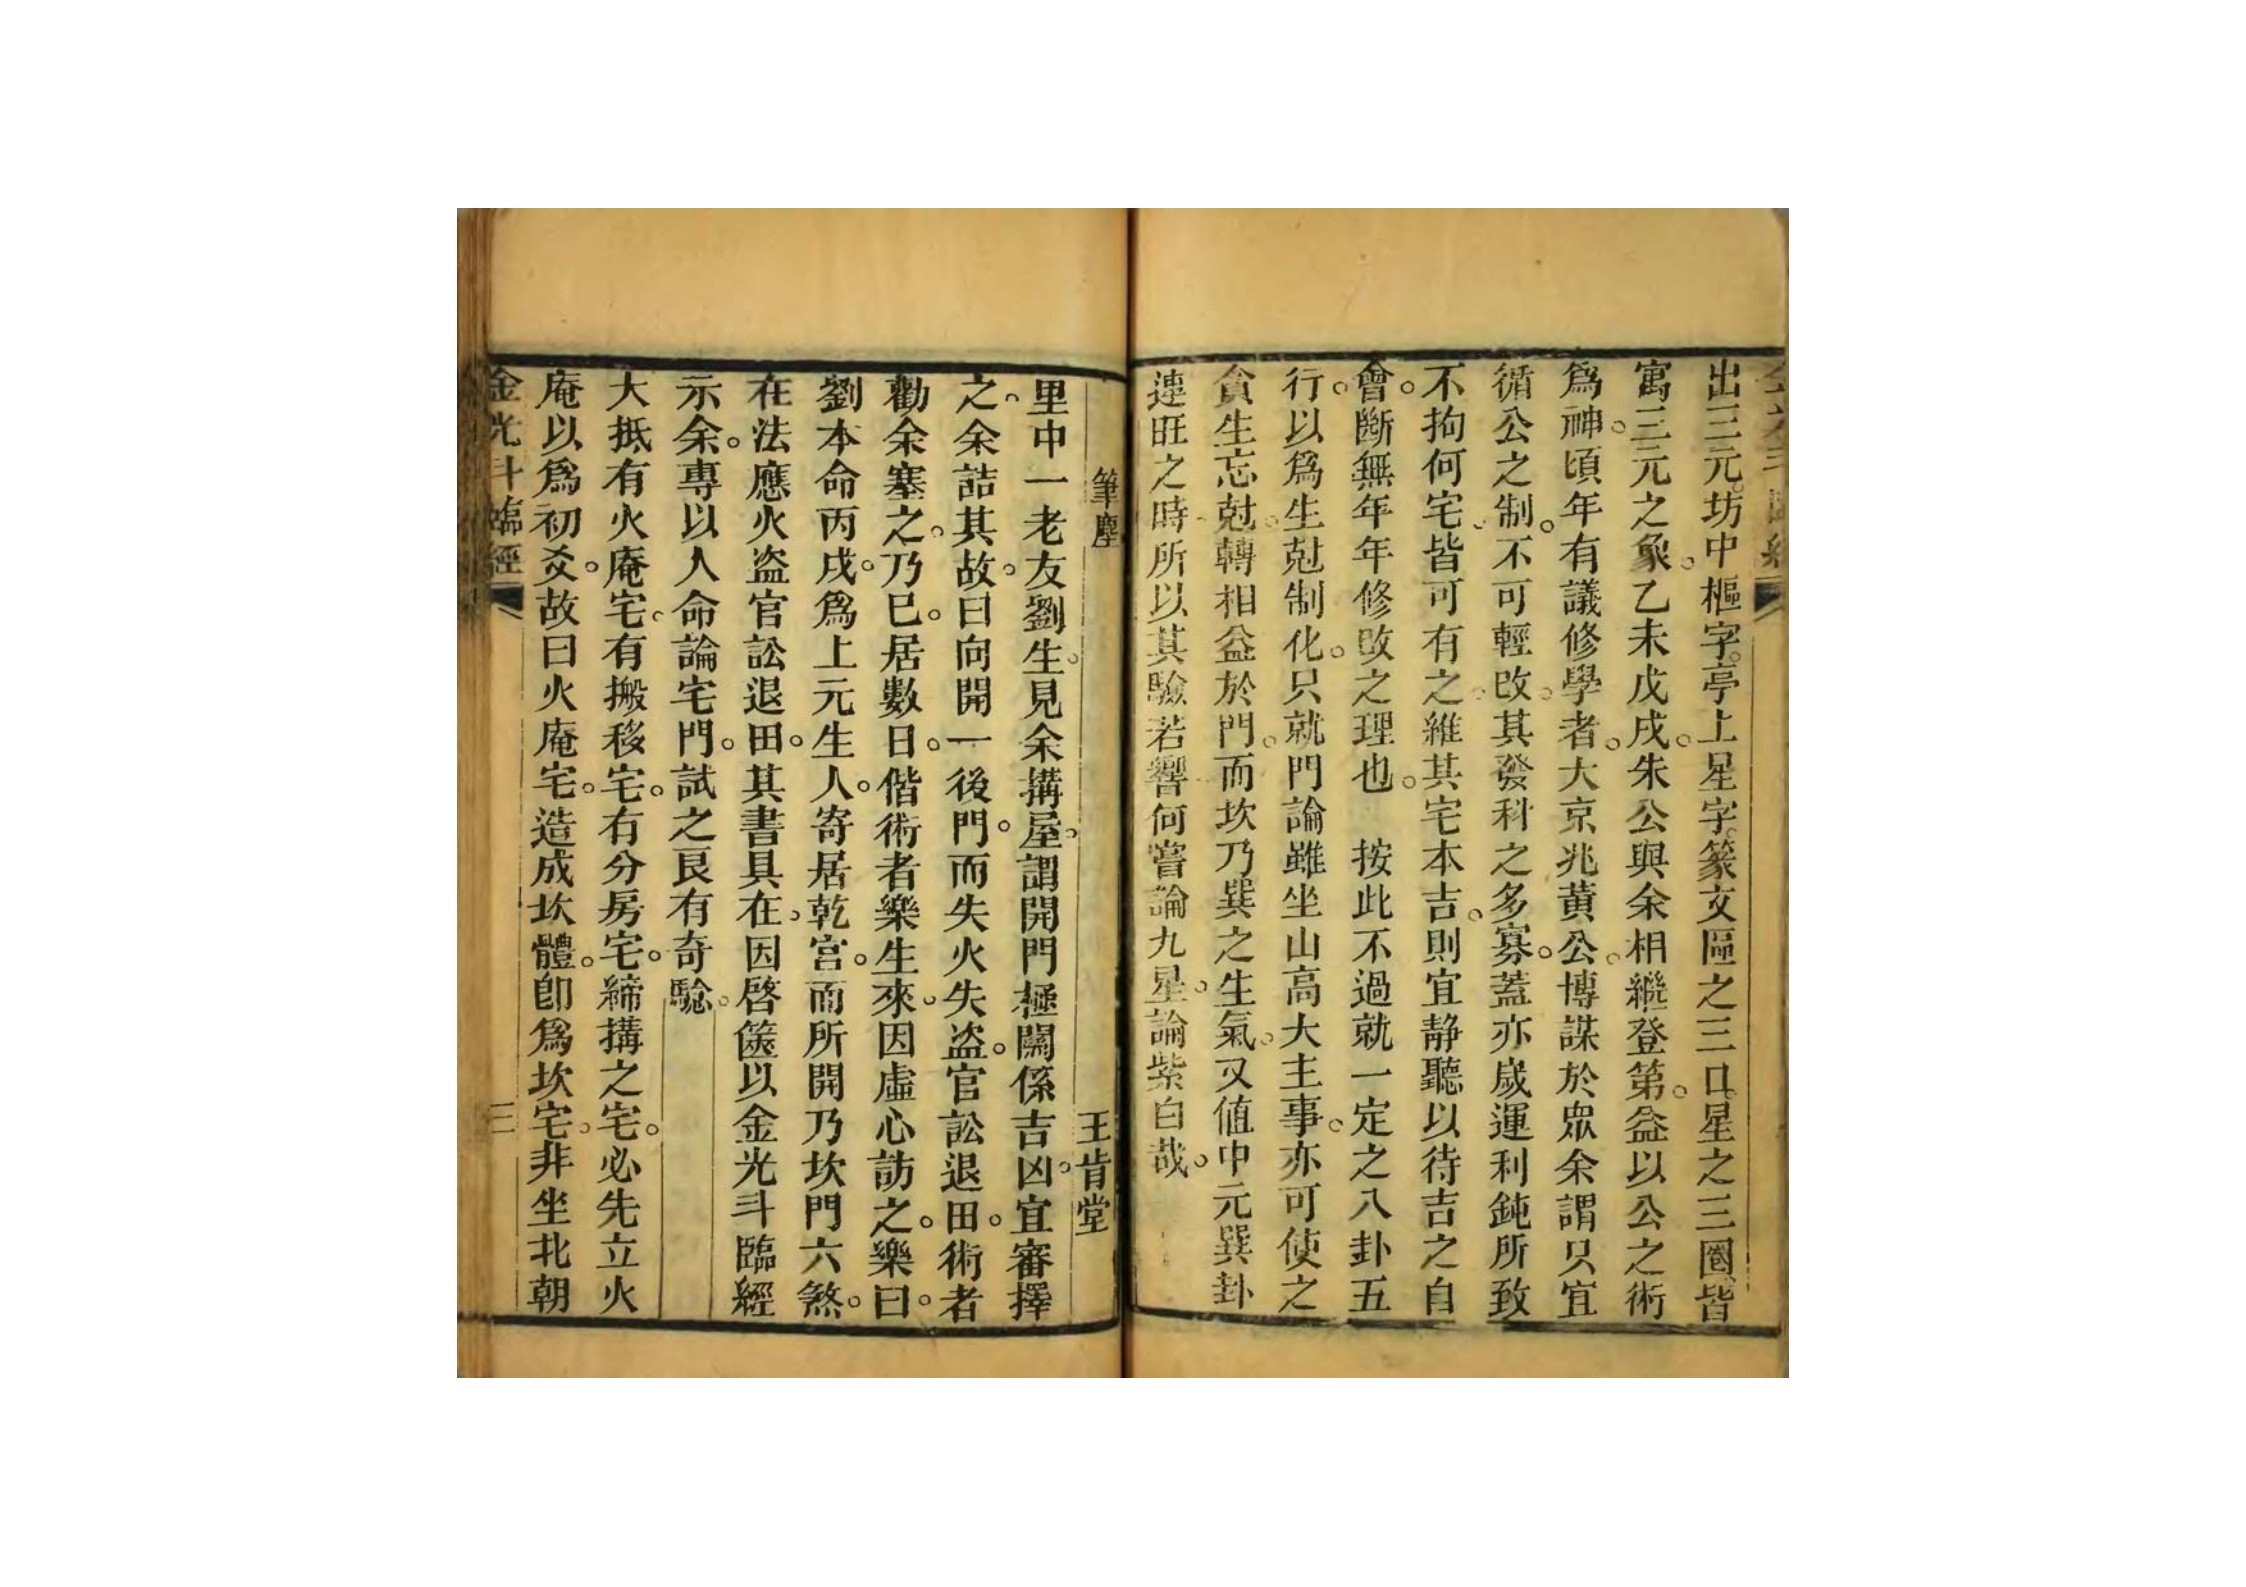 出三元。坊中樞字。亭上星字。篆文區之三口。星之三圈。皆
寓三元之象。乙未戊戌。朱公與余相繼登第。益以公之術
爲神。頃年有議修學者。大京兆黃公。博謀於眾余謂只宜
循公之制。不可輕改。其發科之多寡。蓋亦歲運利鈍所致
不拘何宅。皆可有之。維其宅本吉。則宜靜聽以待吉之自
會。斷無年年修改之理也。　按此不過就一定之八卦五
行。以爲生尅制化。只就門論雖坐山高大主事。亦可使之
貪生忘尅。轉相益於門。而坎乃巽之生氣。又值中元巽卦
連旺之時所以其驗若響何嘗論九星。論紫白哉。
筆塵　王肯堂
里中一老友劉生。見余搆屋。謂開門極關係吉凶。宜審擇
之。余詰其故。曰向開一後門。而失火失盜。官訟退田。術者
勸余塞之。乃已。居數日。偕術者樂生來。因虛心訪之。樂曰。
劉本命丙戌。爲上元生人。寄居乾宮。而所開乃坎門六煞。
在法應火盜官訟退田。其書具在。因啓篋以金光斗臨經
示余。專以人命論宅門。試之良有奇驗。
大抵有火庵宅。有搬移宅。有分房宅。締搆之宅。必先立火
庵以爲初爻。故曰火庵宅。造成坎體。卽爲坎宅。非坐北朝
金光斗臨經　三